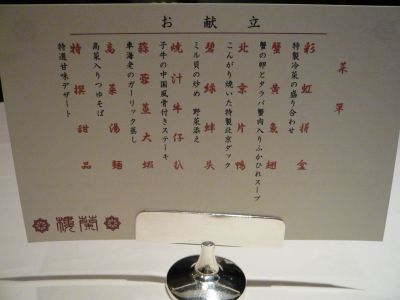 お献立
菜单
彩虹拼盆
特製冷菜の盛り合わせ
蟹黄魚翅
蟹の卵とタラバ蟹肉入りふかひれスープ
北京片鴨
こんがり焼いた特製北京ダック
碧緑蚌
ミル貝の炒め 野菜添え
焼汁牛仔扒
子牛の中国風骨付きステーキ
蒜蓉蒸大蝦
車海老のガーリック蒸し
高菜湯麺
高菜入りつゆそば
特撰甜品
特選甘味デザート